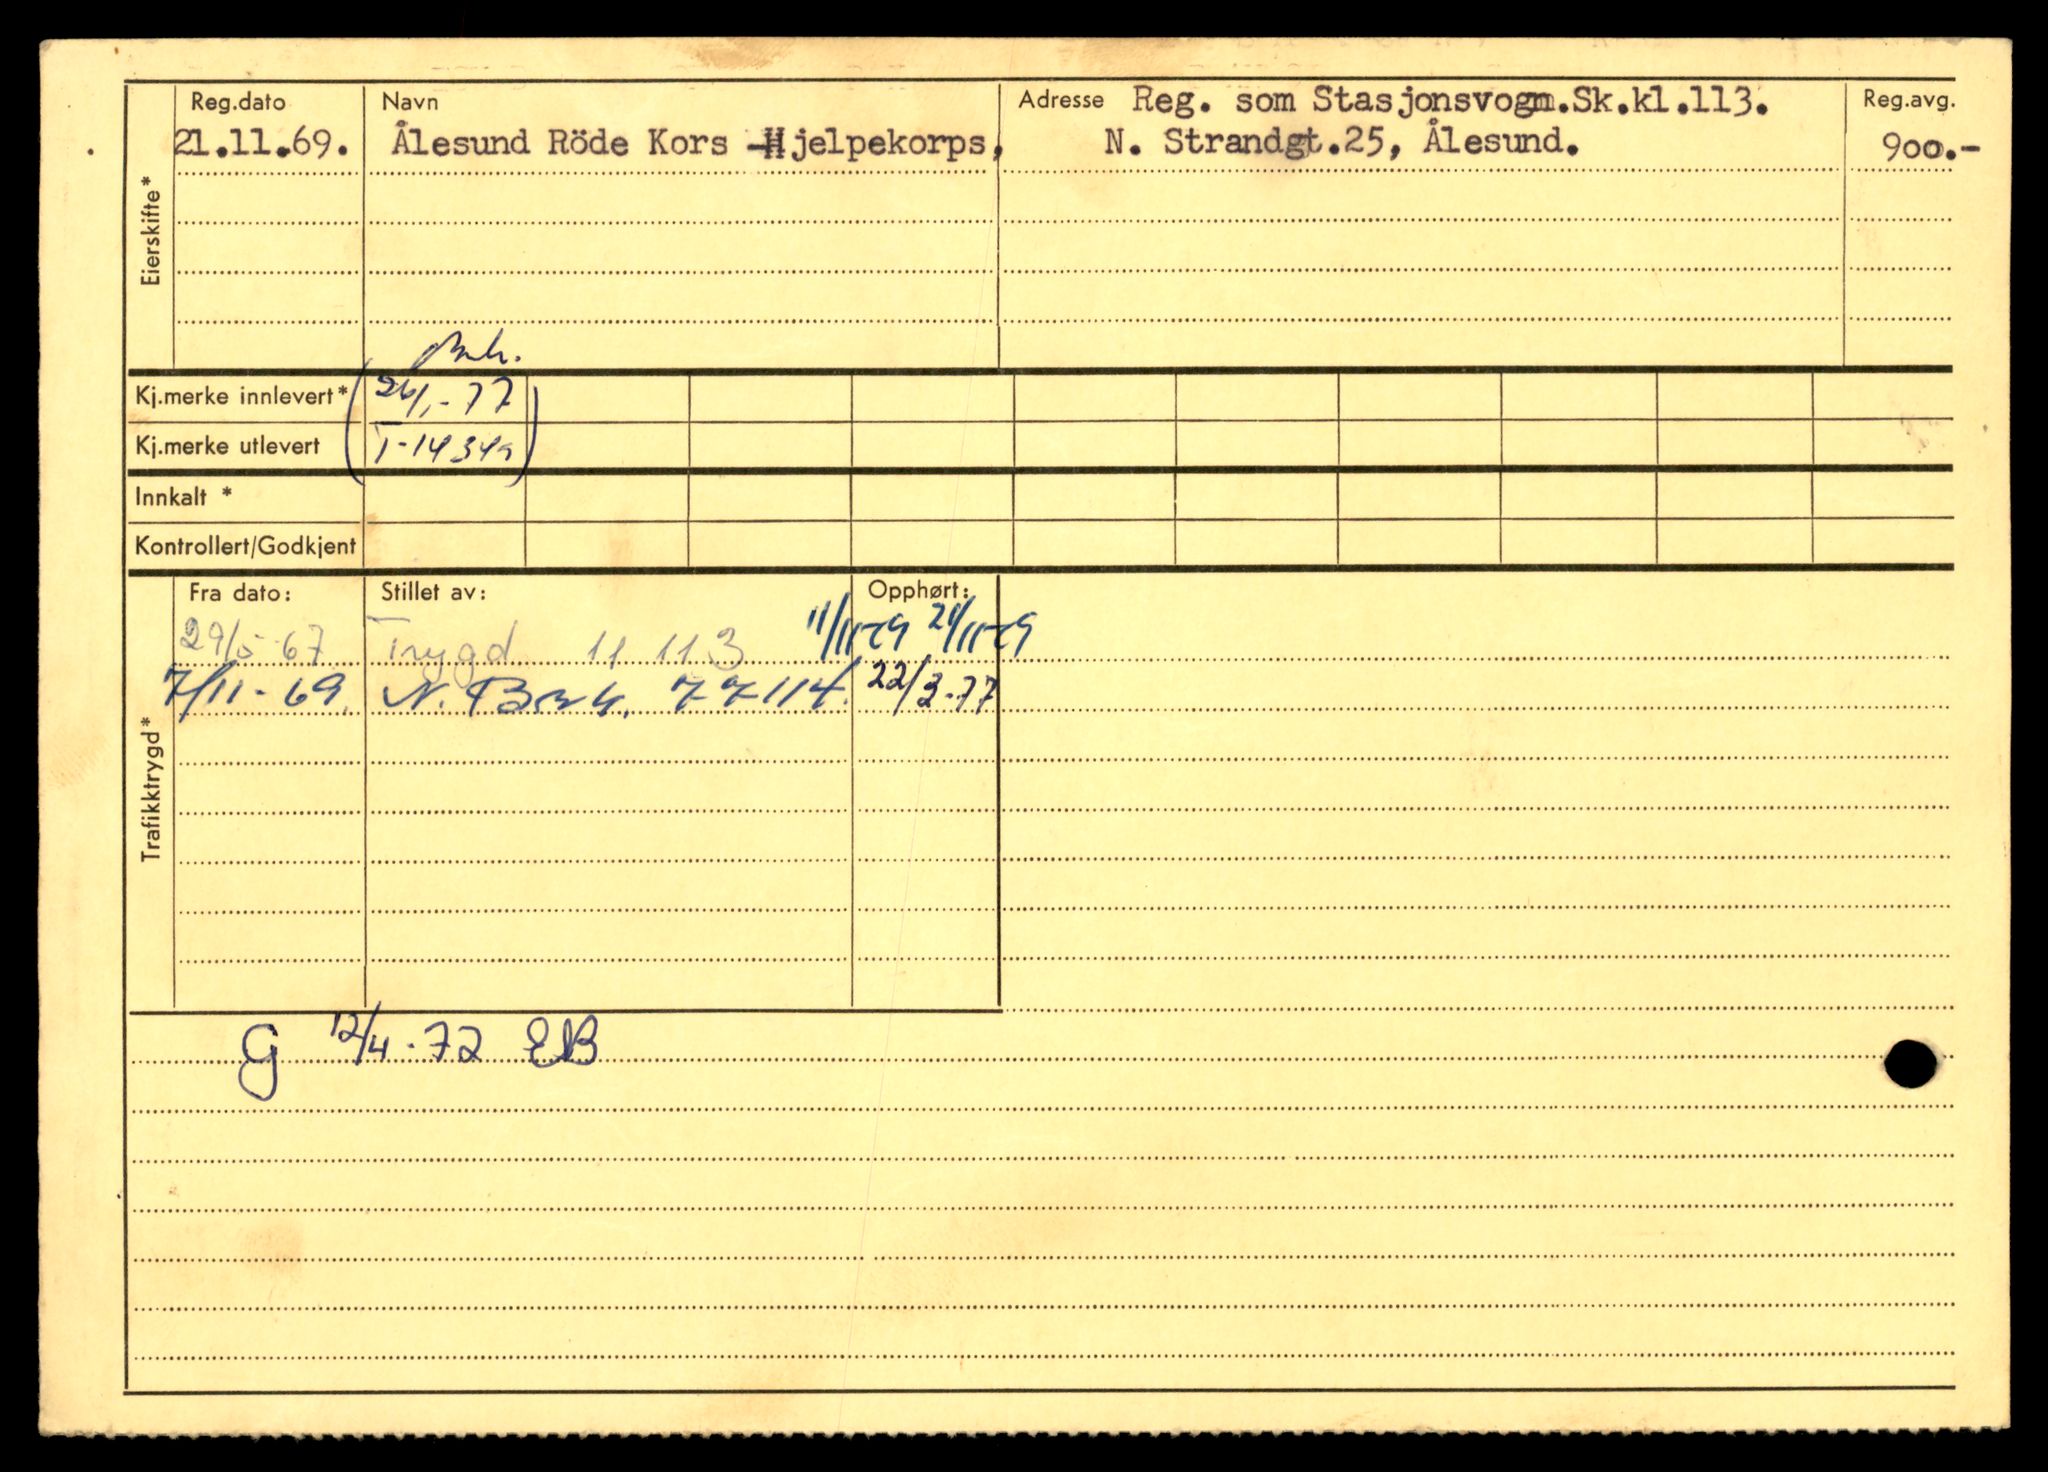 Reg.dato Navn Adresse Reg. som Stasjonsvogn.Sk.kl.113. Reg.avg.
21.11.69. Ålesund Röde Kors Hjelpekorps, N. Strandgt.25, Ålesund. 900.-
Eierskifte*
Kj.merke innlevert* 26/1-77
Kj.merke utlevert T-14349
Innkalt *
Kontrollert/Godkjent
Fra dato: Stillet av: Opphørt:
29/5-67 Trygd 11 113
7/11-69 N. 77114 22/3-77
Trafikktrygd*
G 12/4-72 EB